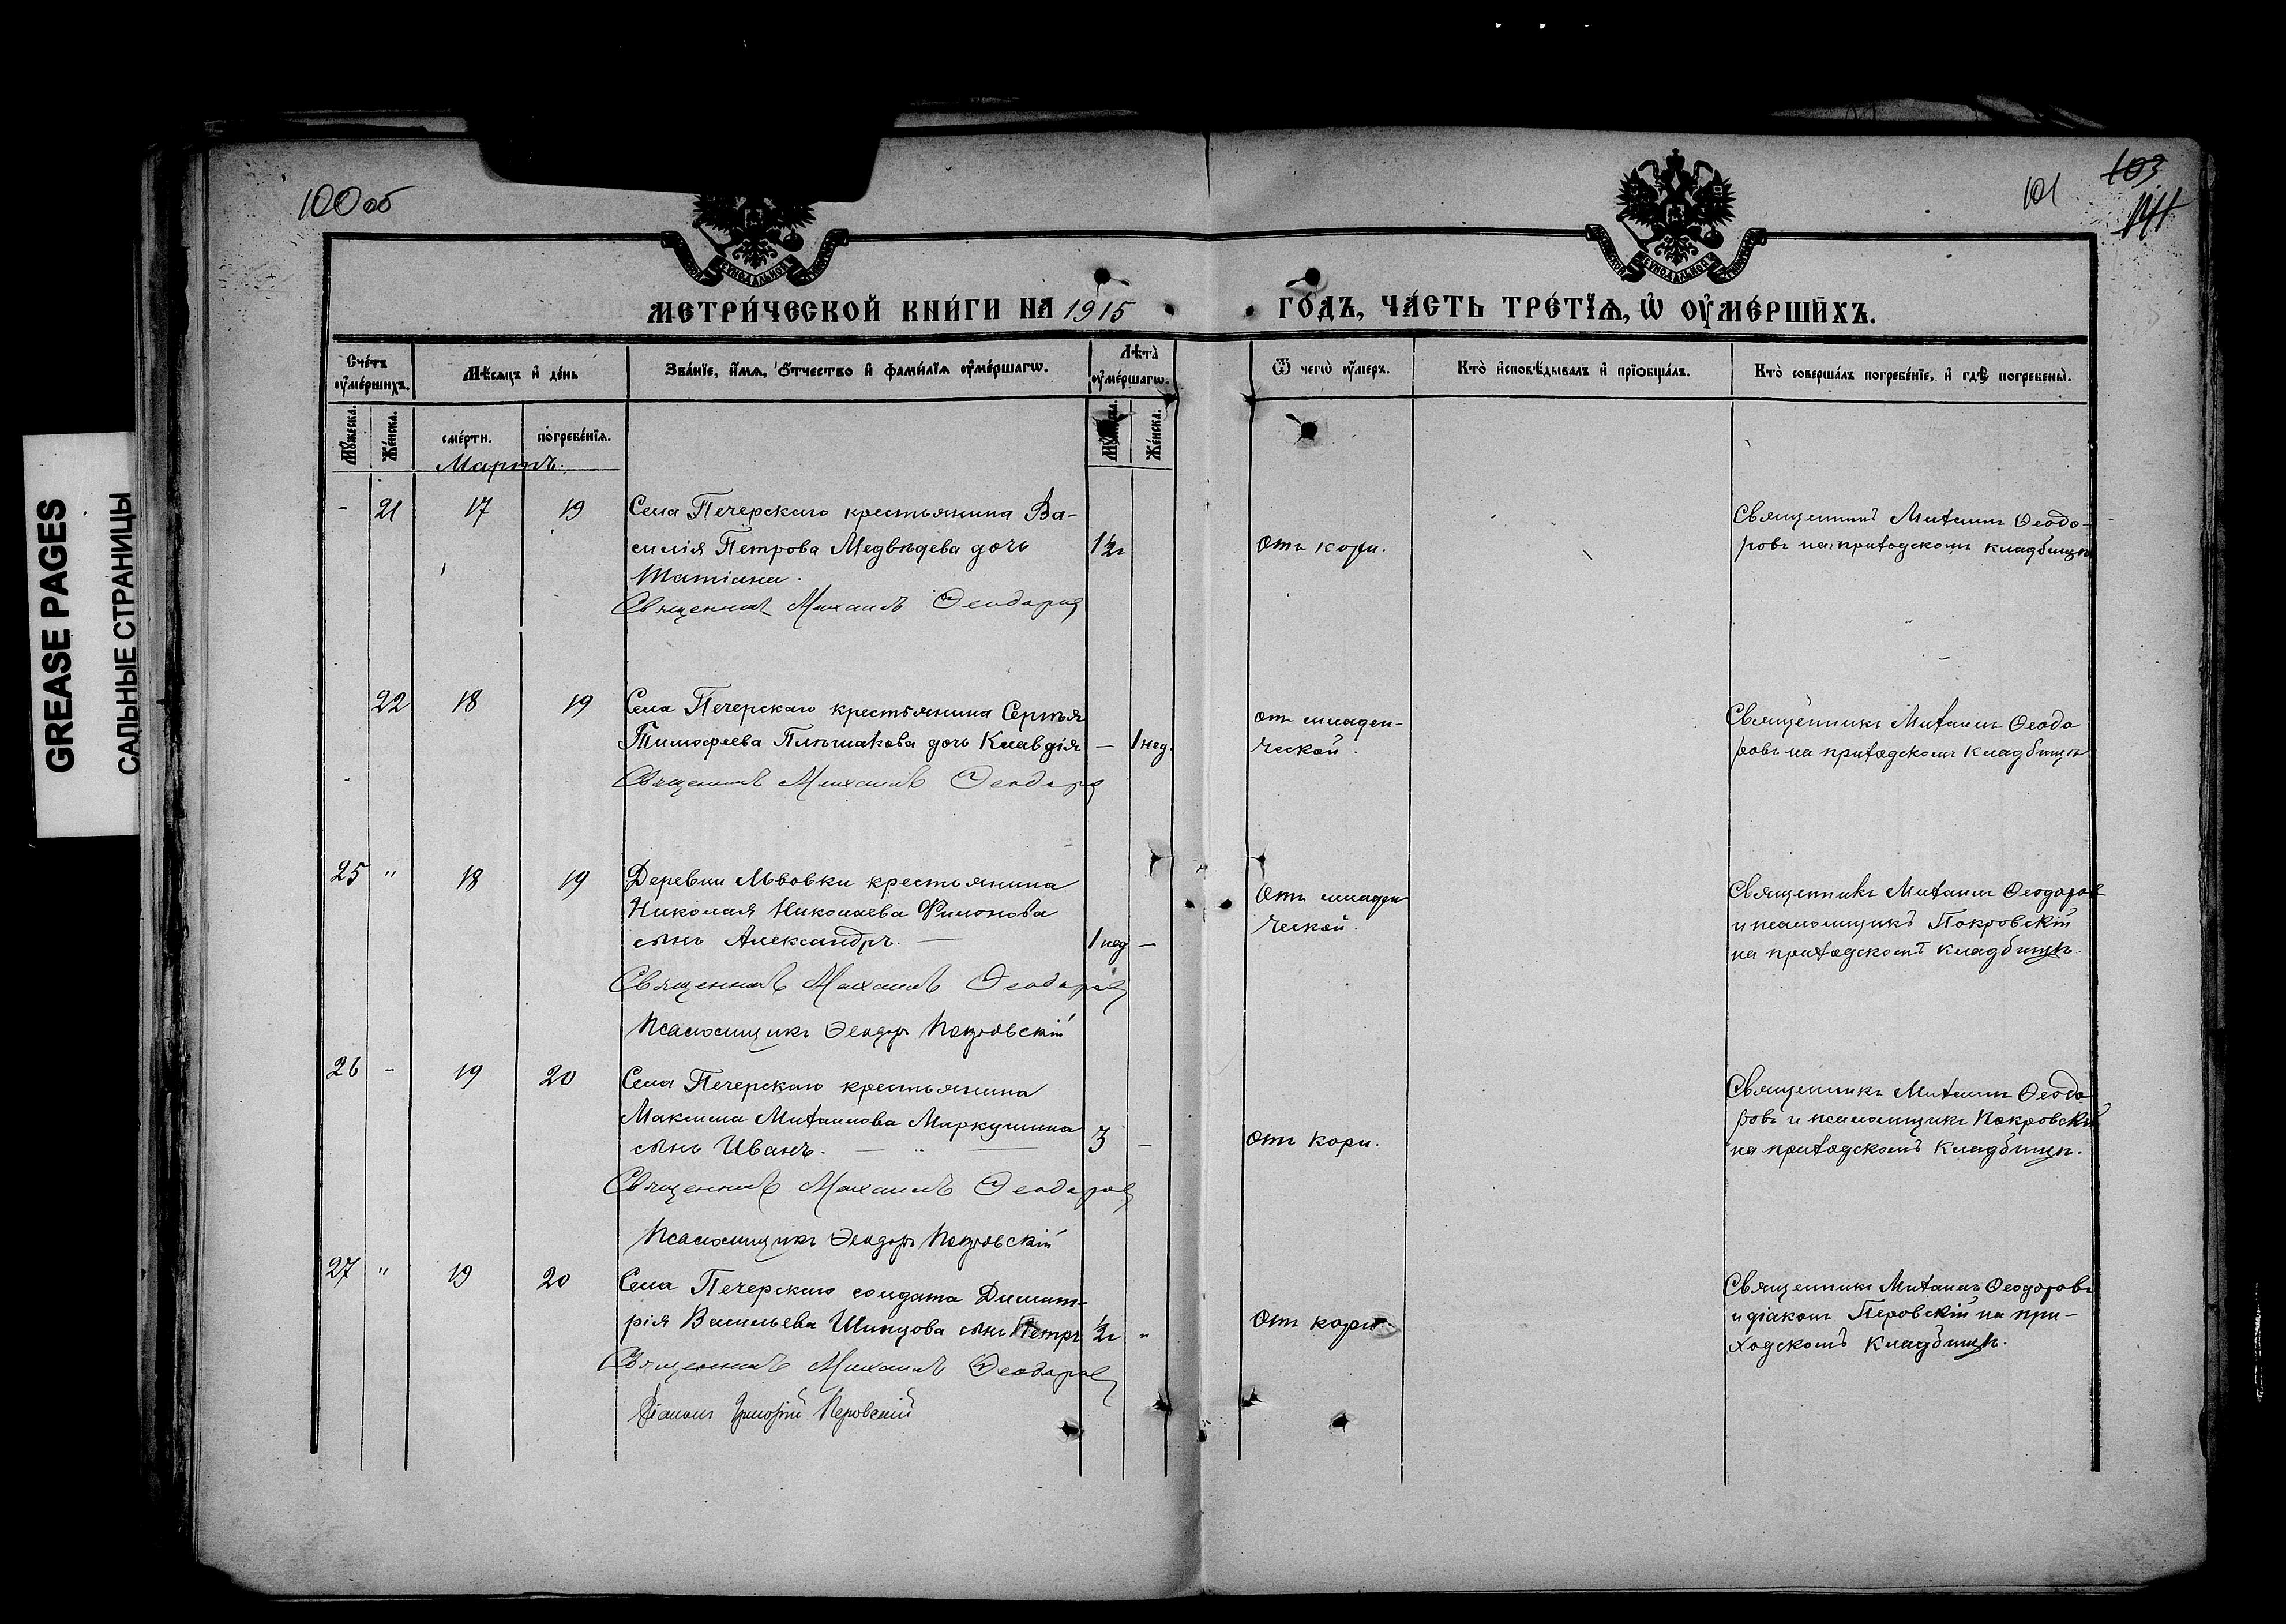 100 об
101
103
GREASE PAGES
САЛЬНЫЕ СТРАНИЦЫ
МЕТРИ́ЧЕСКОЙ КНИ́ГИ НА 1915
ГО́ДЪ, ЧА́СТЬ ТРЕ́ТЇѦ, Ѿ ОУ҆МЕ́РШИХЪ.
Сче́тъ оу҆ме́ршихъ.
Мѣ́сяцъ и҆ де́нь
Зва́нїе, и҆́мѧ, ѻ҆́тчество и҆ фами́лїѧ оу҆ме́ршагѡ.
Лѣ́та оу҆ме́ршагѡ.
Ѿ чегѡ̀ оу҆́меръ.
Кто̀ и҆сповѣ́дывалъ и҆ прїѻбща́лъ.
Кто̀ соверша́лъ погребе́нїе, и҆ гдѣ̀ погребены̀.
Мꙋ́жеска.
Же́нска.
сме́рти.
погребе́нїѧ.
Мꙋ́жеска.
Же́нска.
Мартъ.
- 21 17 19 Села Печерскаго крестьянина Ва-
силія Петрова Медвѣдева дочь 1½
Татіана.
Священникъ Михаилъ Ѳеодоровъ
отъ кори.
Священникъ Михаилъ Ѳеодо-
ровъ на приходскомъ кладбищѣ
22 18 19 Села Печерскаго крестьянина Сергѣя
Тимофеева дочь Клавдія — 1 нед.
Священникъ Михаилъ Ѳеодоровъ
отъ младен-
ческой.
Священникъ Михаилъ Ѳеодо
ровъ на приходскомъ кладбищѣ
25 " 18 19 Деревни Львовки крестьянина
Николая Николаева Филонова
сынъ Александръ. — 1 нед —
Священникъ Михаилъ Ѳеодоровъ
Псаломщикъ Ѳеодоръ Покровскій
отъ младен
ческой.
Священникъ Михаилъ Ѳеодоровъ
и псаломщикъ Покровскій
на приходскомъ кладбищѣ.
26 - 19 20 Села Печерскаго крестьянина
Максима Михаилова Маркушина
сынъ Иванъ. 3 —
Священникъ Михаилъ Ѳеодоровъ
Псаломщикъ Ѳеодоръ Покровскій
отъ кори.
Священникъ Михаилъ Ѳеодо
ровъ и псаломщикъ Покровскій
на приходскомъ кладбищѣ.
27 " 19 20 Села Печерскаго солдата Димит-
рія Васильева Шипцова сынъ Петръ ½ "
Священникъ Михаилъ Ѳеодоровъ
Діаконъ Григорій Перовскій
отъ кори.
Священникъ Михаилъ Ѳеодоровъ
и діаконъ Перовскій на при-
ходскомъ кладбищѣ.